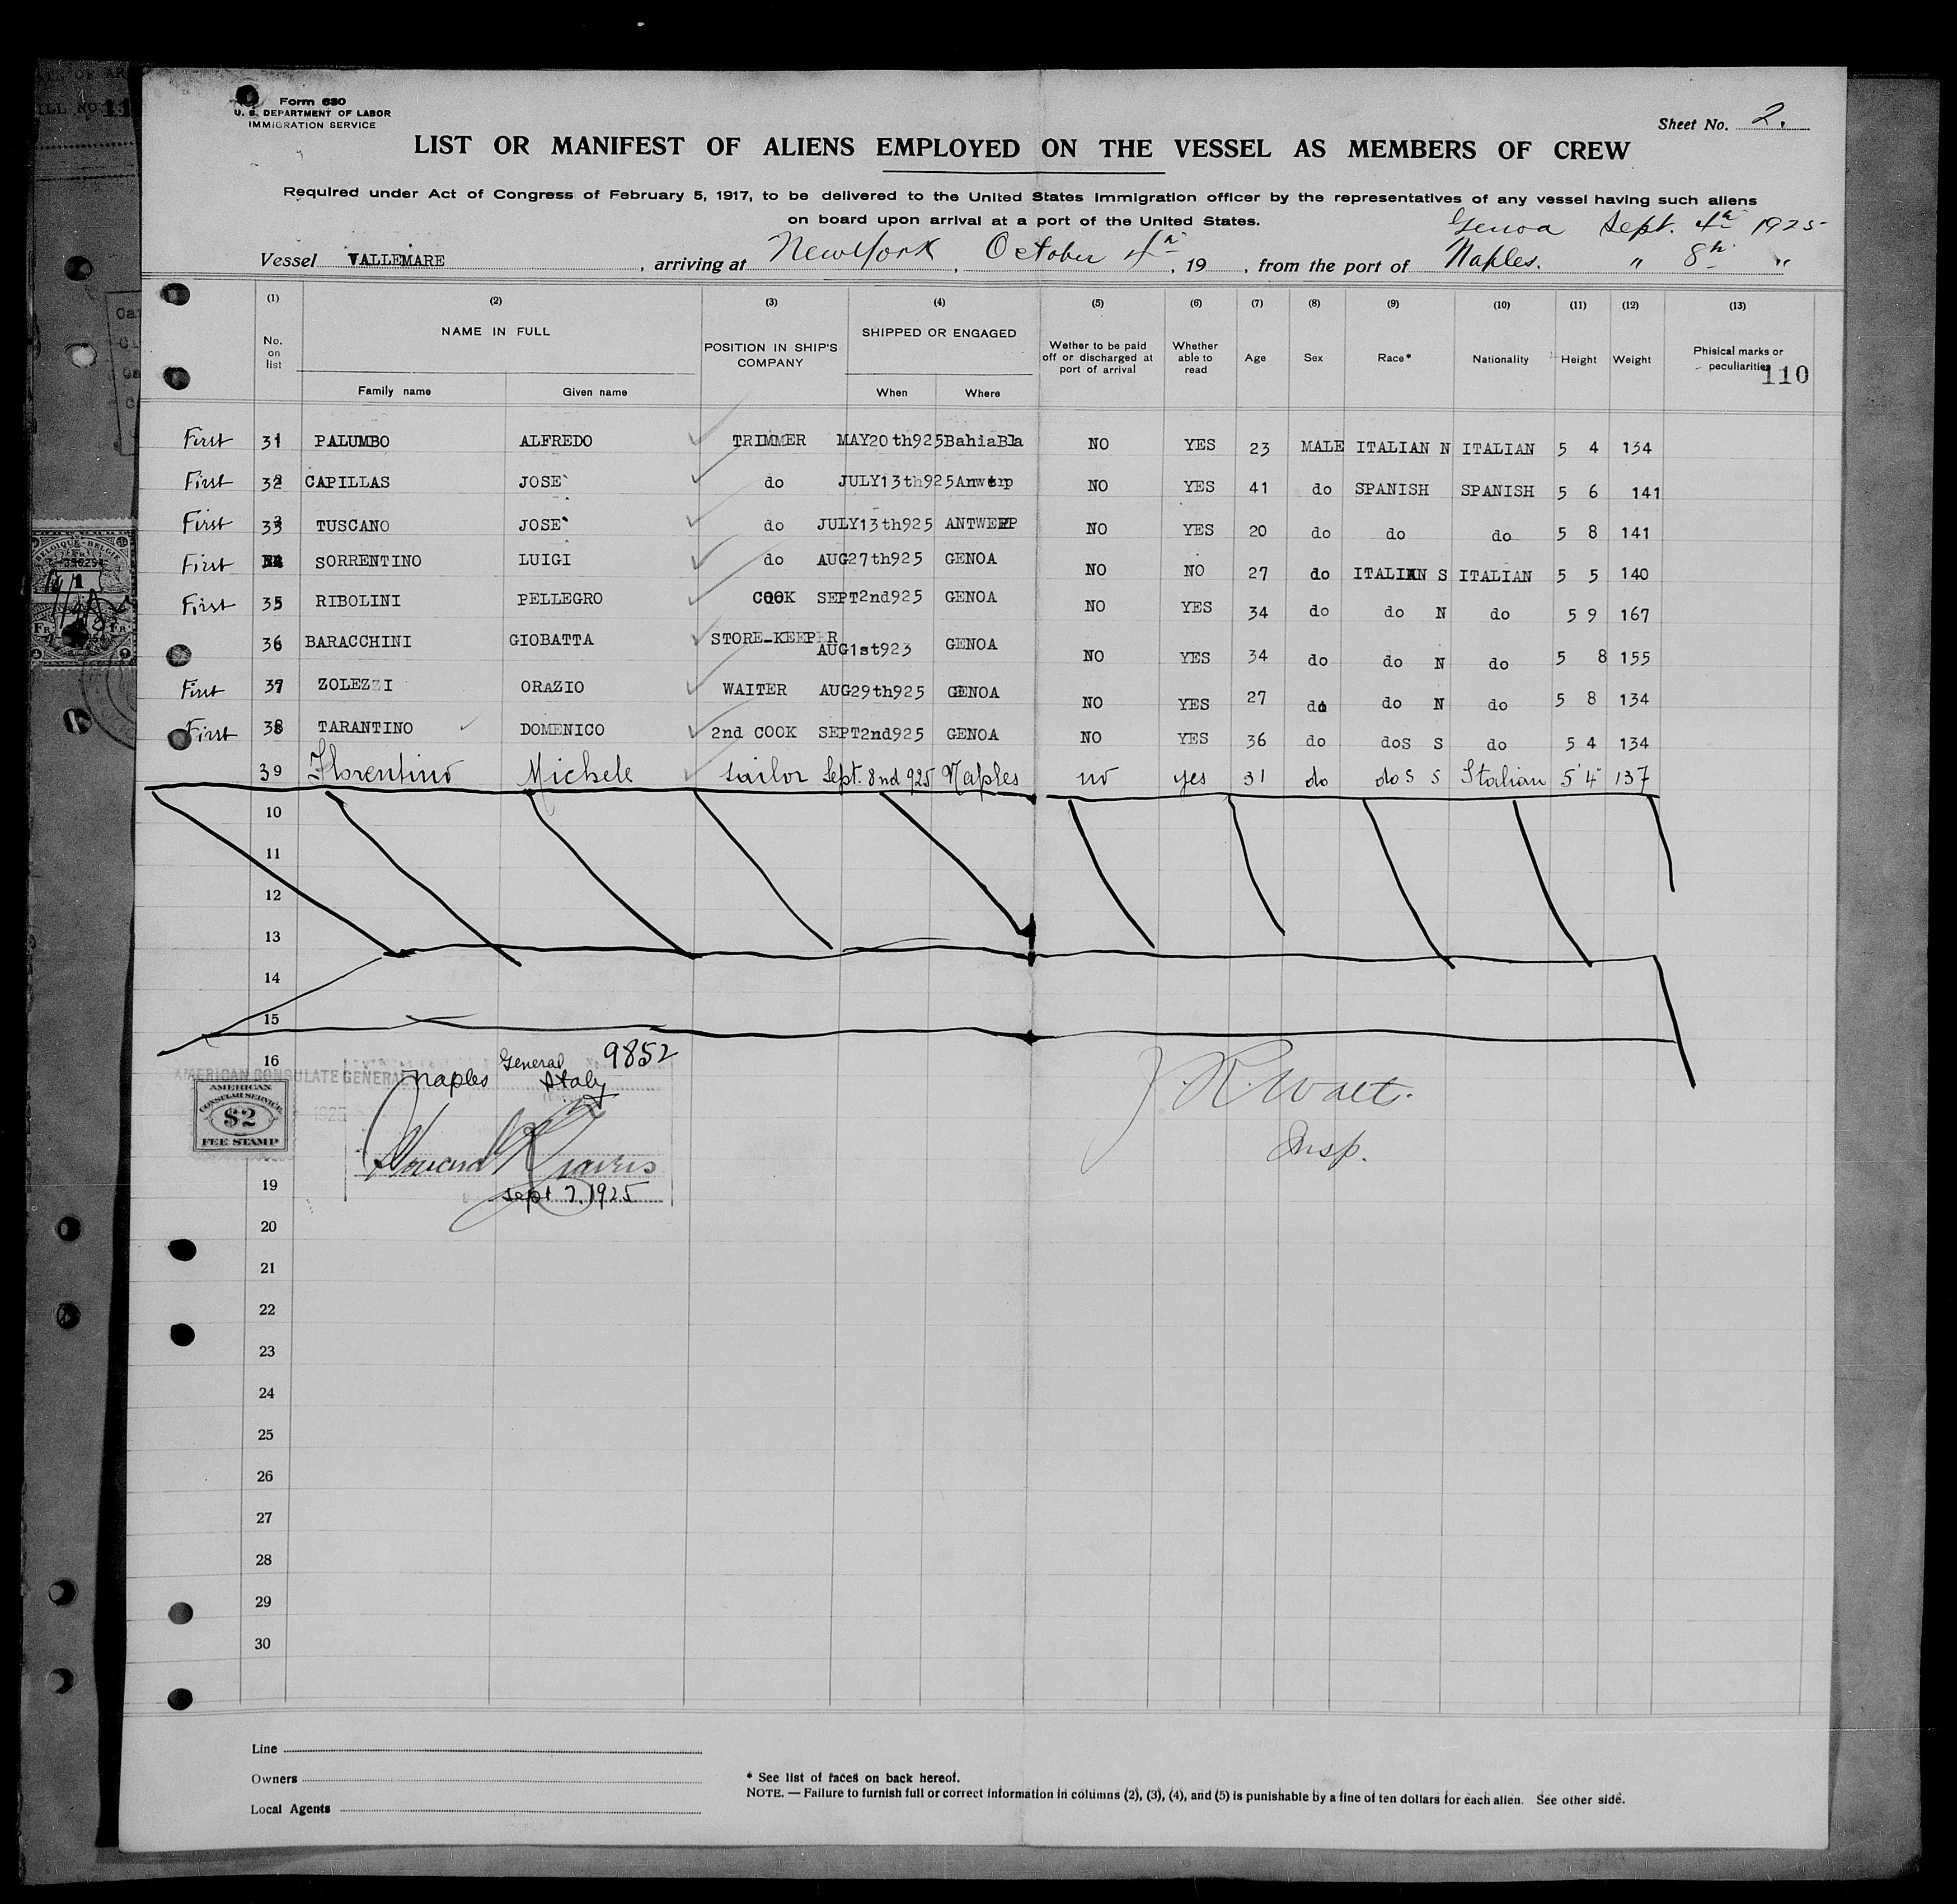 Form 680
U. S. DEPARTMENT OF LABOR
IMMIGRATION SERVICE
Sheet No. 2.
LIST OR MANIFEST OF ALIENS EMPLOYED ON THE VESSEL AS MEMBERS OF CREW
Required under Act of Congress of February 5, 1917, to be delivered to the United States immigration officer by the representatives of any vessel having such aliens
on board upon arrival at a port of the United States.
Genoa Sept. 4th 1925
Vessel VALLEMARE, arriving at New York, October 4th, 19 , from the port of Naples. " 8th "
(1) (2) (3) (4) (5) (6) (7) (8) (9) (10) (11) (12) (13)
No. on list NAME IN FULL POSITION IN SHIP'S COMPANY SHIPPED OR ENGAGED Wether to be paid off or discharged at port of arrival Whether able to read Age Sex Race* Nationality Height Weight Phisical marks or peculiarities
110
Family name Given name When Where
First 31 PALUMBO ALFREDO TRIMMER MAY20th925 BahiaBla NO YES 23 MALE ITALIAN N ITALIAN 5 4 134
First 32 CAPILLAS JOSE` do JULY13th925 Anwerp NO YES 41 do SPANISH SPANISH 5 6 141
First 33 TUSCANO JOSE` do JULY13th925 ANTWERP NO YES 20 do do do 5 8 141
First 34 SORRENTINO LUIGI do AUG27th925 GENOA NO NO 27 do ITALIAN S ITALIAN 5 5 140
First 35 RIBOLINI PELLEGRO COOK SEPT2nd925 GENOA NO YES 34 do do N do 5 9 167
36 BARACCHINI GIOBATTA STORE-KEEPER AUG1st923 GENOA NO YES 34 do do N do 5 8 155
First 37 ZOLEZZI ORAZIO WAITER AUG29th925 GENOA NO YES 27 do do N do 5 8 134
First 38 TARANTINO DOMENICO 2nd COOK SEPT2nd925 GENOA NO YES 36 do doS S do 5 4 134
39 Florentino Michele sailor Sept. 8nd 925 Naples no yes 31 do do S S Italian 5 4 137
10
11
12
13
14
15
16
General 9852
AMERICAN CONSULATE GENERAL
Naples Italy
AMERICAN
CONSULAR SERVICE
$2
FEE STAMP
1925
J. R. Walt.
Insp.
Sept 7, 1925
19
20
21
22
23
24
25
26
27
28
29
30
Line
Owners
Local Agents
* See list of races on back hereof.
NOTE. — Failure to furnish full or correct information in columns (2), (3), (4), and (5) is punishable by a fine of ten dollars for each alien. See other side.